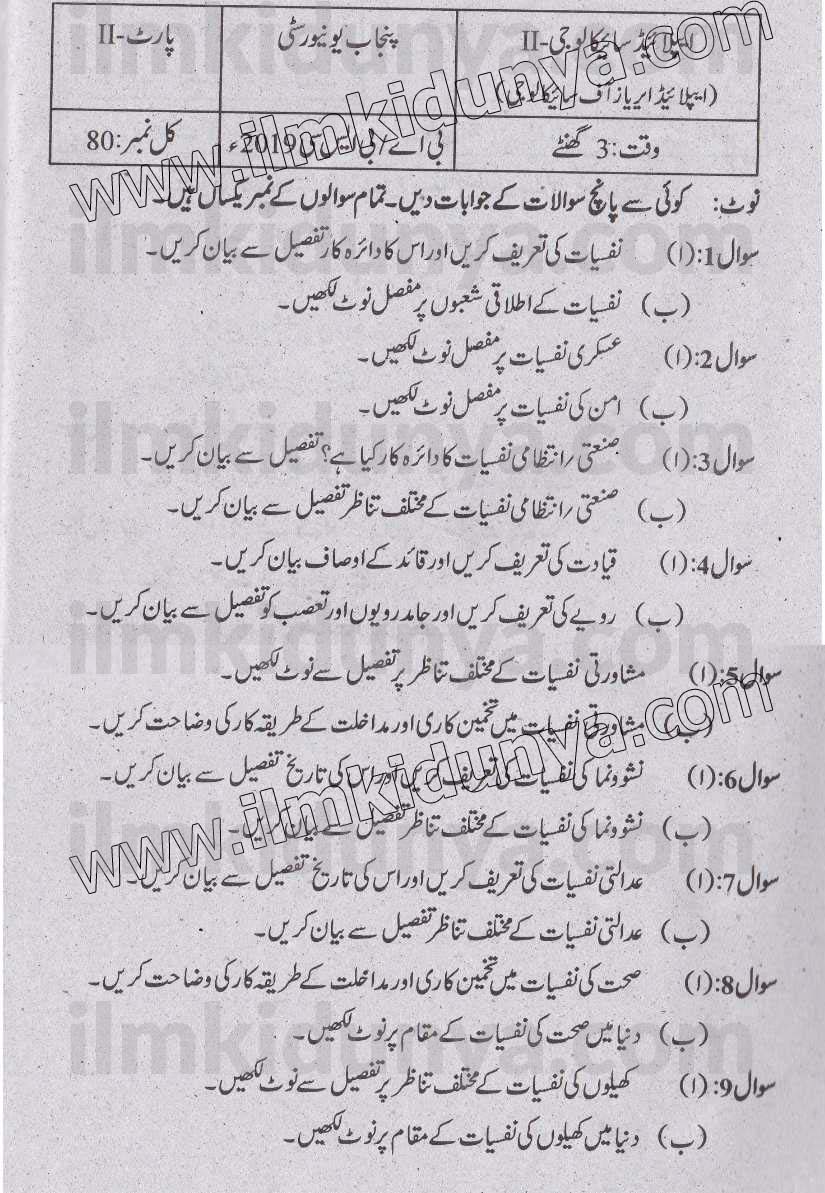 اپلائیڈ سائیکالوجی-II
(اپلائیڈ ایریاز آف سائیکالوجی)
پنجاب یونیورسٹی
پارٹ-II
وقت: 3 گھنٹے
بی اے/بی ایس سی 2019ء
کل نمبر: 80
نوٹ: کوئی سے پانچ سوالات کے جوابات دیں۔ تمام سوالوں کے نمبر یکساں ہیں۔
سوال 1: (ا) نفسیات کی تعریف کریں اور اس کا دائرہ کار تفصیل سے بیان کریں۔
(ب) نفسیات کے اطلاقی شعبوں پر مفصل نوٹ لکھیں۔
سوال 2: (ا) عسکری نفسیات پر مفصل نوٹ لکھیں۔
(ب) امن کی نفسیات پر مفصل نوٹ لکھیں۔
سوال 3: (ا) صنعتی/انتظامی نفسیات کا دائرہ کار کیا ہے؟ تفصیل سے بیان کریں۔
(ب) صنعتی/انتظامی نفسیات کے مختلف تناظر تفصیل سے بیان کریں۔
سوال 4: (ا) قیادت کی تعریف کریں اور قائد کے اوصاف بیان کریں۔
(ب) رویے کی تعریف کریں اور جامد رویوں اور تعصب کو تفصیل سے بیان کریں۔
سوال 5: (ا) مشاورتی نفسیات کے مختلف تناظر پر تفصیل سے نوٹ لکھیں۔
(ب) مشاورتی نفسیات میں تخمین کاری اور مداخلت کے طریقہ کار کی وضاحت کریں۔
سوال 6: (ا) نشوونما کی نفسیات کی تعریف کریں اور اس کی تاریخ تفصیل سے بیان کریں۔
(ب) نشوونما کی نفسیات کے مختلف تناظر تفصیل سے بیان کریں۔
سوال 7: (ا) عدالتی نفسیات کی تعریف کریں اور اس کی تاریخ تفصیل سے بیان کریں۔
(ب) عدالتی نفسیات کے مختلف تناظر تفصیل سے بیان کریں۔
سوال 8: (ا) صحت کی نفسیات میں تخمین کاری اور مداخلت کے طریقہ کار کی وضاحت کریں۔
(ب) دنیا میں صحت کی نفسیات کے مقام پر نوٹ لکھیں۔
سوال 9: (ا) کھیلوں کی نفسیات کے مختلف تناظر پر تفصیل سے نوٹ لکھیں۔
(ب) دنیا میں کھیلوں کی نفسیات کے مقام پر نوٹ لکھیں۔
www.ilmkidunya.com
www.ilmkidunya.com
ilmkidunya.com
ilmkidunya.com
ilmkidunya.com
ilmkidunya.com
ilmkidunya.com
ilmkidunya.com